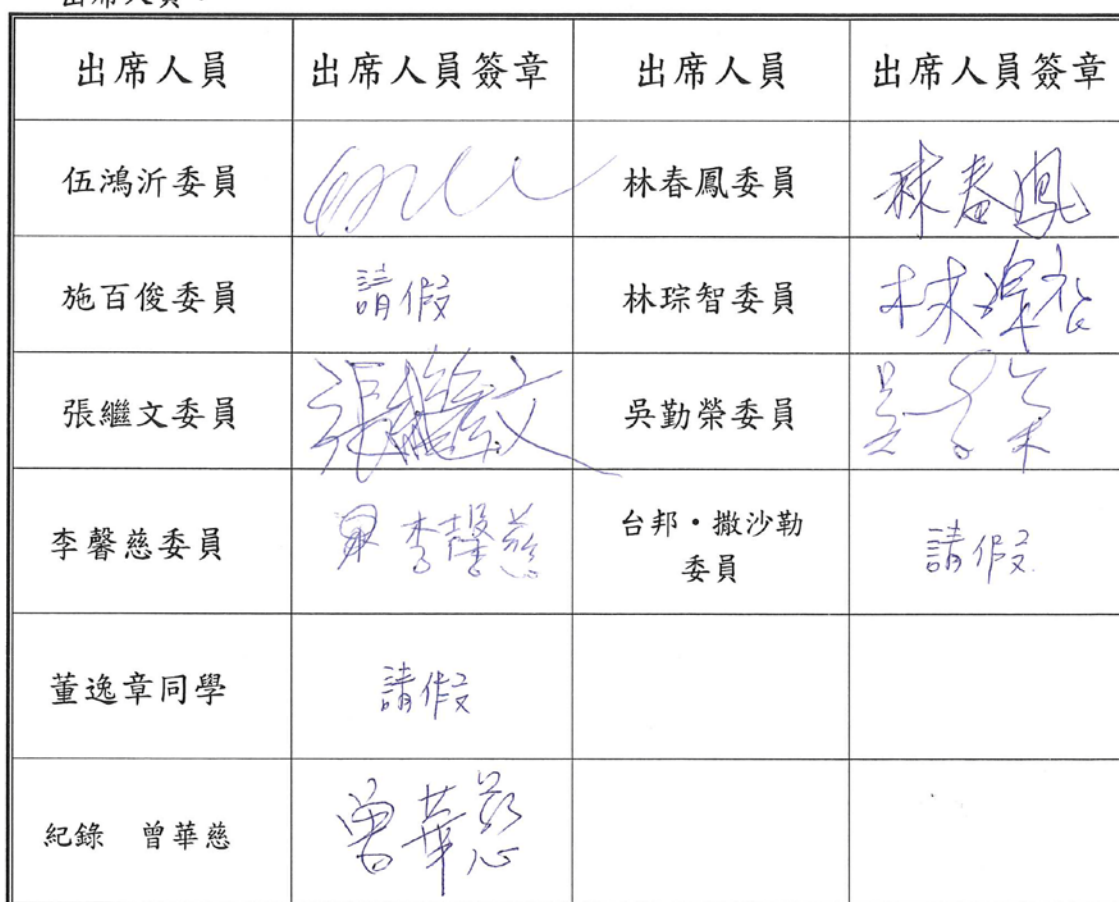 出席人員：
出席人員 出席人員簽章 出席人員 出席人員簽章
伍鴻沂委員 林春鳳委員 林春鳳
施百俊委員 請假 林琮智委員 林琮智
張繼文委員 張繼文 吳勤榮委員 吳勤榮
李馨慈委員 李馨慈 台邦・撒沙勒
委員 請假
董逸章同學 請假
紀錄 曾華慈 曾華慈